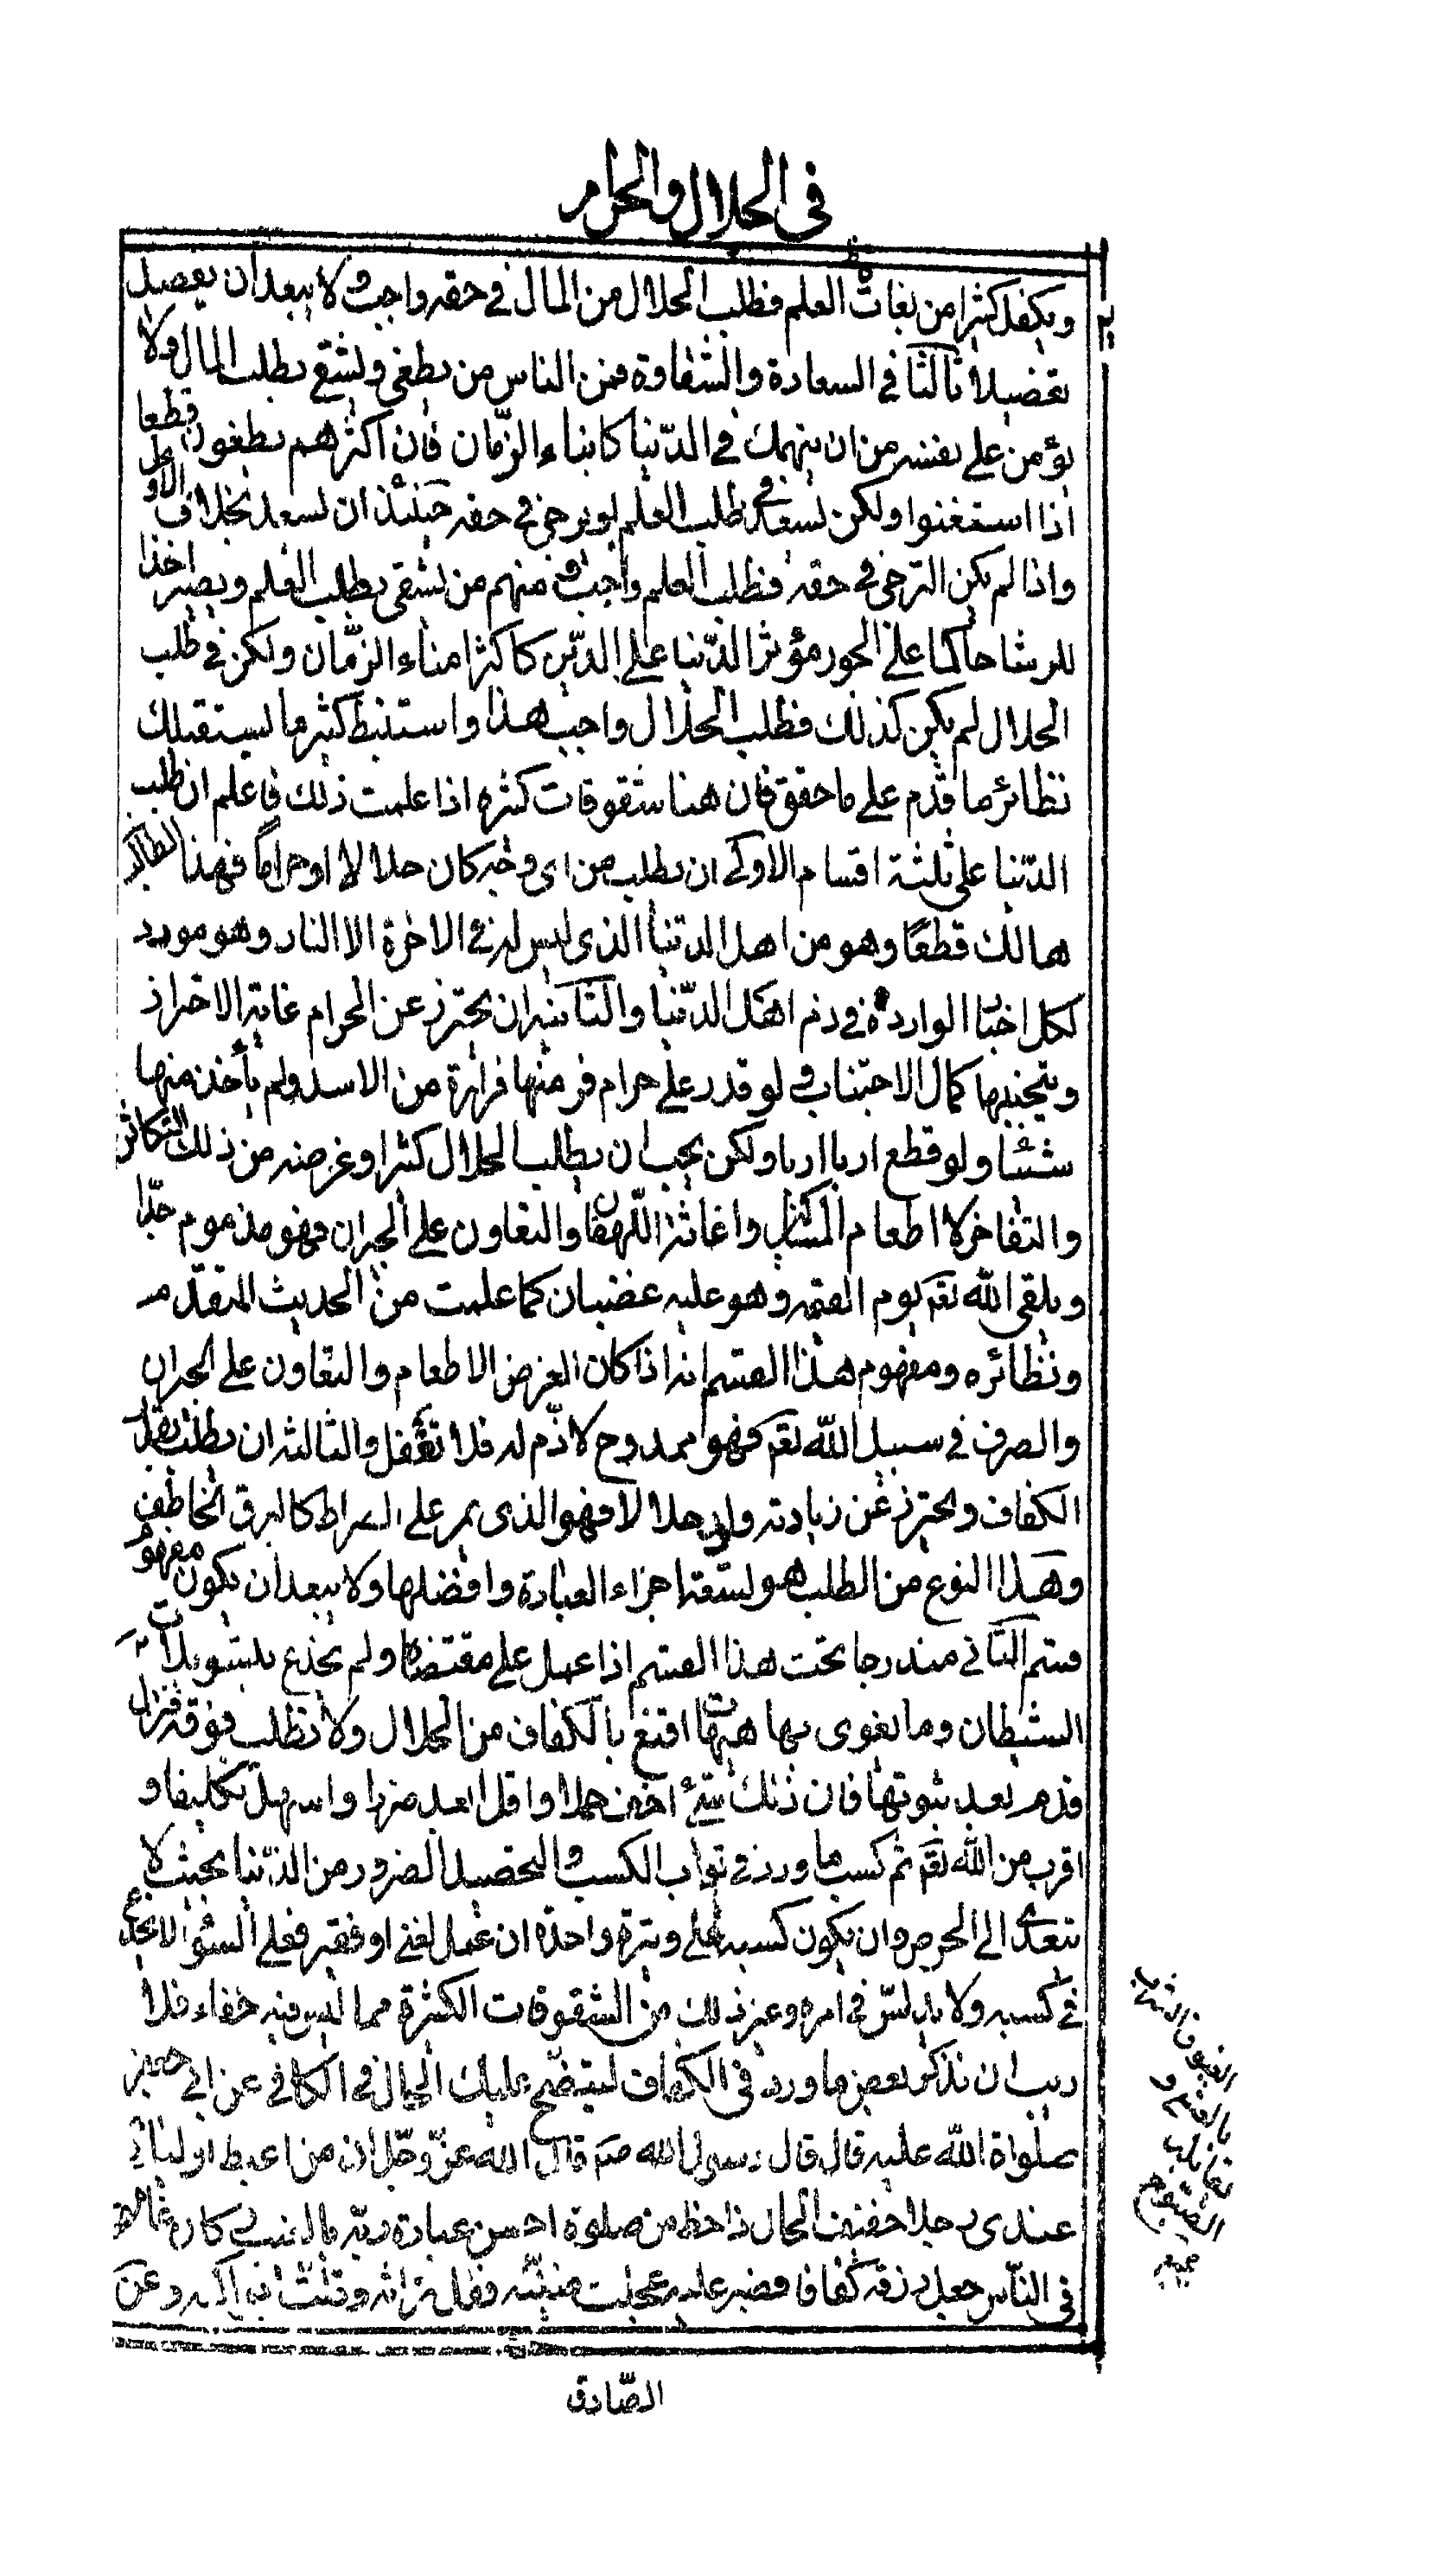 في الحلال والحرام
ويكفل كثيرا من بغات العلم فطلب الحلال من المال في حقه واجب و لا يبعد ان يفصل
تفصيلا ثالثا في السعادة والشقاوة فمن الناس من يطغى ويشقى بطلب المال ولا
يؤمن على نفسه من ان ينهمك في الدنيا كابناء الزمان فان اكثرهم يطغون قطعا
اذا استغنوا ولكن يسعد في طلب العلم لو يرجى في حقه حينئذ ان يسعد بخلاف الاول
واذا لم يكن الترجى في حقه فطلب العلم واجب و منهم من يشقى بطلب العلم ويصير اخذا
للرشا حاكما على الجور مؤثرا الدنيا على الدين كاكثر امناء الزمان ولكن في طلب
الحلال لم يكن كذلك فطلب الحلال واجب هذا واستنبط كثير ما يستقبلك
نظائر ما قدم على ما حقق فان هنا شقوقات كثيرة اذا علمت ذلك فاعلم ان طلب
الدنيا على ثلثة اقسام الاولى ان يطلب من اى وجه كان حلالا او حراما فهذا الطالب
هالك قطعا وهو من اهل الدنيا الذى ليس له في الاخرة الا النار وهو مورد
لكل اخبار الواردة في ذم اهل الدنيا والثانية ان يحترز عن الحرام غاية الاحتراز
ويتجنبها كمال الاجتناب لو قدر على حرام فر منها فراره من الاسد ولم يأخذ منها
شيئا ولو قطع اربا اربا ولكن يحب ان يطلب الحلال كثيرا وغرضه من ذلك التكاثر
والتفاخر لا اطعام المساكين واغاثة اللهفان والتعاون على الجيران فهو مذموم جدا
ويلقى الله تعم يوم القيمة وهو عليه غضبان كما علمت من الحديث المتقدم
ونظائره ومفهوم هذا القسم انه اذا كان الغرض الاطعام والتعاون على الجيران
والصرف في سبيل الله تعم فهو ممدوح لا ذم له فلا تغفل والثالثة ان يطلب بقدر
الكفاف ويحترز عن زيادته ولو حلالا فهو الذى يمر على الصراط كالبرق الخاطف
وهذا النوع من الطلب هو تسعة اجزاء العبادة وافضلها ولا يبعد ان يكون مفهوم
قسم الثاني مندرجا تحت هذا القسم اذا عمل على مقتضاه ولم يخدع بتسويلات
الشيطان وما يغوى بها هيهات اقنع بالكفاف من الحلال ولا تطلب فوقه فتزل
قدم بعد ثبوتها فان ذلك شئ اخف حملا واقل بعد ضررا واسهل تكليفا و
اقرب من الله تعم ثم كسب ما ورد في ثواب الكسب و التحصيل الضرور من الدنيا بحيث لا
يتعدى الى الحرص وان يكون كسبه على وتيرة واحدة ان عمل لغني او فقير فعلى السوى لا يخدع
في كسبه ولا يدلس في امره وغير ذلك من الشقوقات الكثيرة مما ليس فيه خفاء فلا
ريب ان نذكر بعض ما ورد في الكفاف ليتضح عليك الحال في الكافي عن ابي جعفر
صلواة الله عليه قال قال رسول الله صم قال الله عز وجل ان من اغبط اوليائي
عندى رجلا خفيف الحال ذا حظ من صلوة احسن عبادة ربه بالغيب و كان غامضا
في الناس جعل رزقه كفافا فصبر عليه عجلت منيته فقل تراثه وقلت بواكيه وعن
الصادق
العيوق النشر
بالعشى و
يقابله
الصبوح